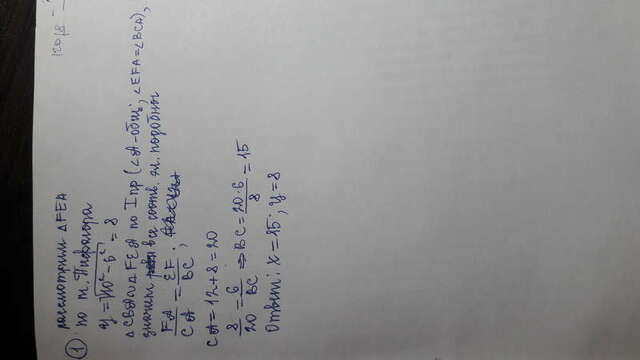 120,8
1
рассмотрим △FEA
по т. Пифагора
y = √10² - 6² = 8
△CBA ∾ △FEA по I пр (∠A - общ; ∠EFA = ∠BCA),
значит все соотв. эл. подобны
FA/CA = EF/BC ;
CA = 12 + 8 = 20
8/20 = 6/BC ⇒ BC = 20·6/8 = 15
Ответ: x = 15 ; y = 8